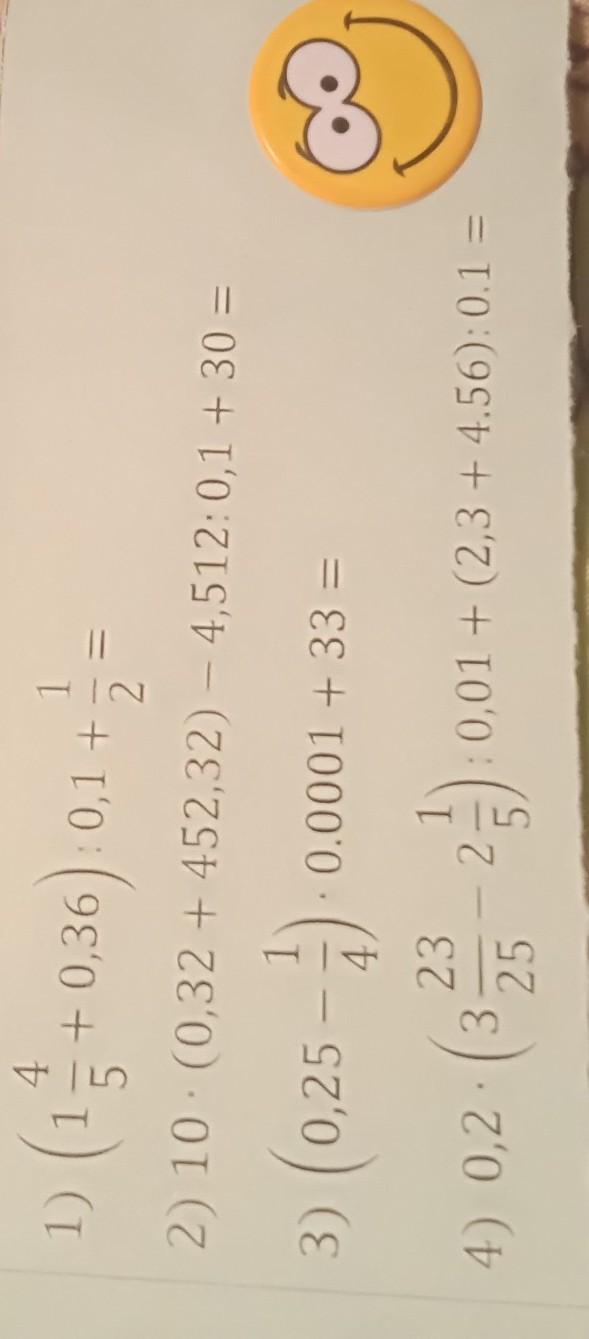 1) (1 4/5 + 0,36) : 0,1 + 1/2 =
2) 10 · (0,32 + 452,32) − 4,512: 0,1 + 30 =
3) (0,25 − 1/4) · 0.0001 + 33 =
4) 0,2 · (3 23/25 − 2 1/5) : 0,01 + (2,3 + 4.56): 0.1 =